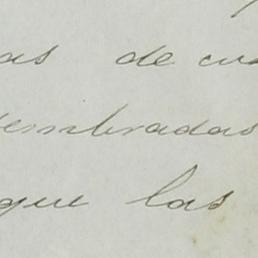 as de cua
sembradas
que las